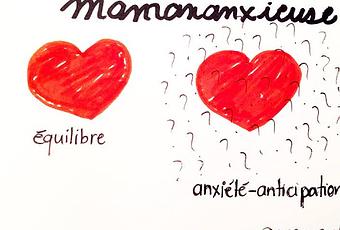 mamananxieuse
équilibre
? ? ? ? ? ? ? ? ? ? ? ? ? ? ? ? ? ? ? ?
anxiété-anticipation